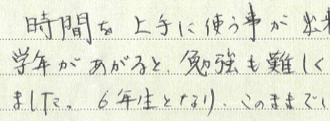 時間を上手に使う事が出来
学年があがると、勉強も難しく
ました。6年生となり、このままでい